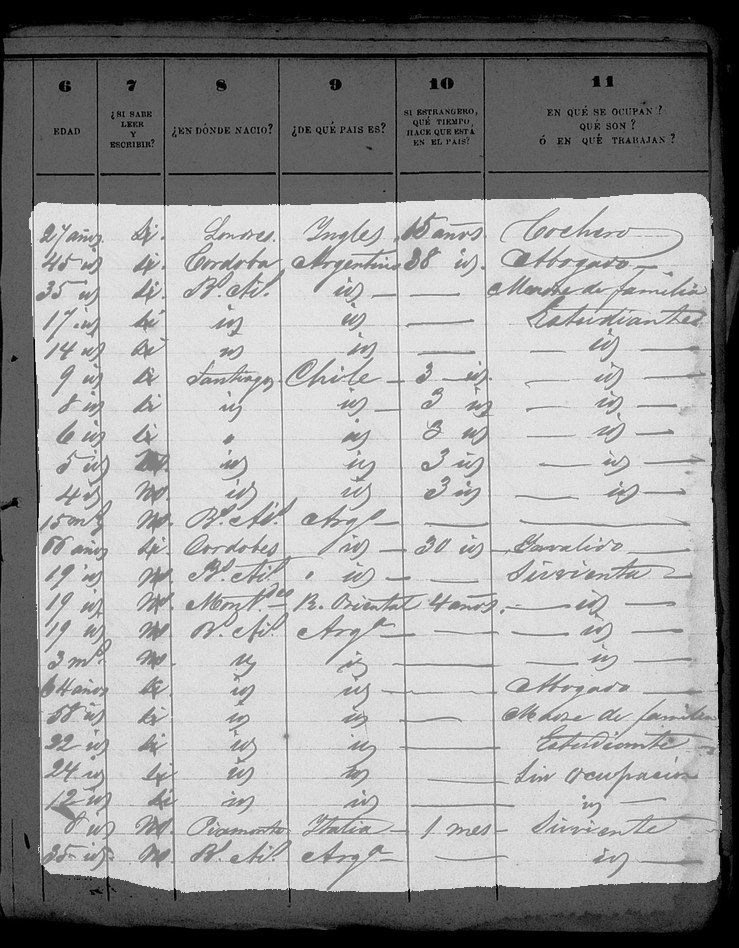 6 7 8 9 10 11
EDAD ¿SI SABE LEER Y ESCRIBIR? ¿EN DÓNDE NACIO? ¿DE QUÉ PAIS ES? SI ESTRANGERO, QUÉ TIEMPO HACE QUE ESTÁ EN EL PAIS? EN QUÉ SE OCUPAN? QUÉ SON? Ó EN QUÉ TRABAJAN?
27 años Si. Londres Ingles 15 años. Cochero
45 id Si. Cordoba Argentino 38 id. Abogado
35 id Si. Bs. As. id — — Madre de familia
17 id Si id id — Estudiantes
14 id Si id id — — id —
9 id Si Santiago Chile — 3 — id. — id —
8 id Si id id — 3 id — id —
6 id Si " id 3 id — id —
5 id id id 3 id — id —
4 id No. id id 3 id — id —
15 ms. No. Bs. As. Arga. — — —
66 años Si. Cordobes id — 30 id — Invalido —
19 id No Bs. As. " id — — Sirvienta —
19 id No. Montdeo R. Oriental 4 años. — id —
19 id No Bs. As. Arga. — — — id —
3 ms. No. id id — — id —
64 años Si. id id — — Abogado —
58 id Si id id — — Madre de familia
22 id Si id id — — Estudiante —
24 id Si id id — Sin ocupacion
12 id Si id id — id —
8 id No. Piamonte Italia — 1 mes — Sirviente
35 id No. Bs. As. Arga. — — id —